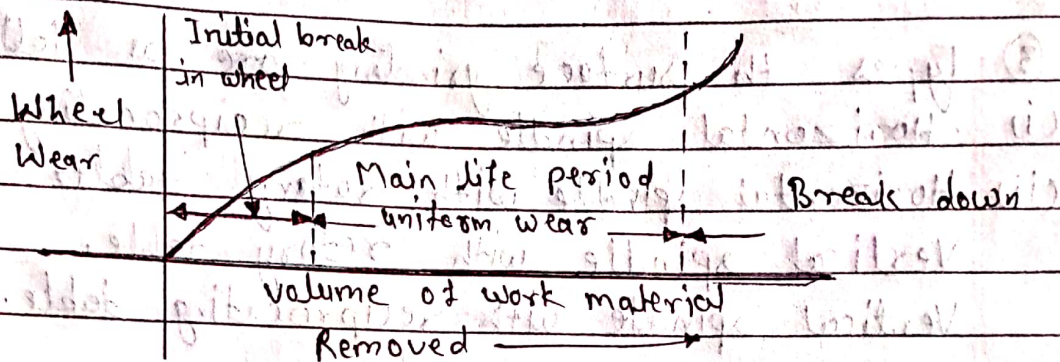 Initial break
in wheel
Wheel
Wear
Main life period
uniform wear
Break down
volume of work material
Removed